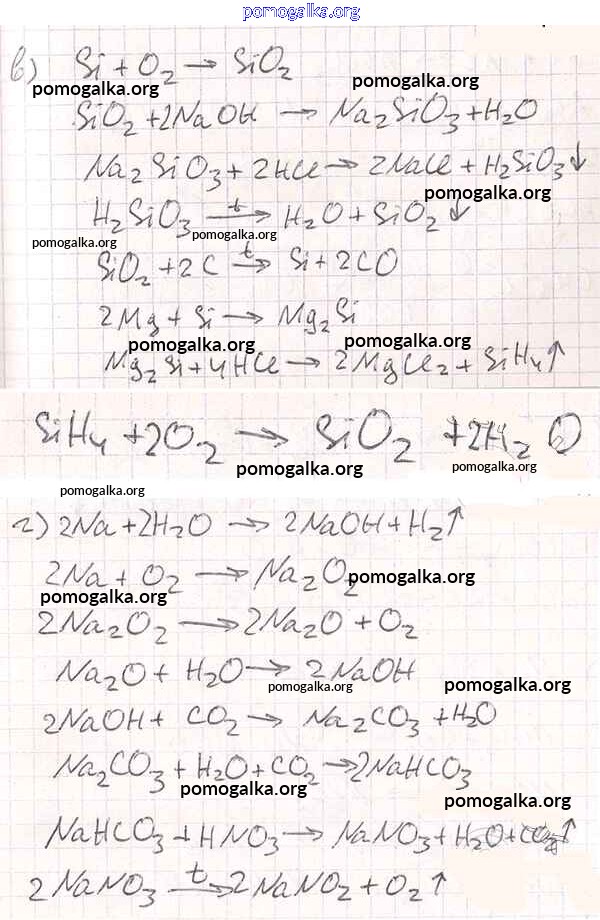 pomogalka.org
в) Si + O₂ → SiO₂
pomogalka.org
pomogalka.org
SiO₂ + 2NaOH → Na₂SiO₃ + H₂O
Na₂SiO₃ + 2HCl → 2NaCl + H₂SiO₃↓
pomogalka.org
H₂SiO₃ →t H₂O + SiO₂↓
pomogalka.org
pomogalka.org
SiO₂ + 2C →t Si + 2CO
2Mg + Si → Mg₂Si
pomogalka.org
pomogalka.org
Mg₂Si + 4HCl → 2MgCl₂ + SiH₄↑
SiH₄ + 2O₂ → SiO₂ + 2H₂O
pomogalka.org
pomogalka.org
pomogalka.org
г) 2Na + 2H₂O → 2NaOH + H₂↑
2Na + O₂ → Na₂O₂
pomogalka.org
pomogalka.org
2Na₂O₂ → 2Na₂O + O₂
Na₂O + H₂O → 2NaOH
pomogalka.org
pomogalka.org
2NaOH + CO₂ → Na₂CO₃ + H₂O
Na₂CO₃ + H₂O + CO₂ → 2NaHCO₃
pomogalka.org
pomogalka.org
NaHCO₃ + HNO₃ → NaNO₃ + H₂O + CO₂↑
2NaNO₃ →t 2NaNO₂ + O₂↑